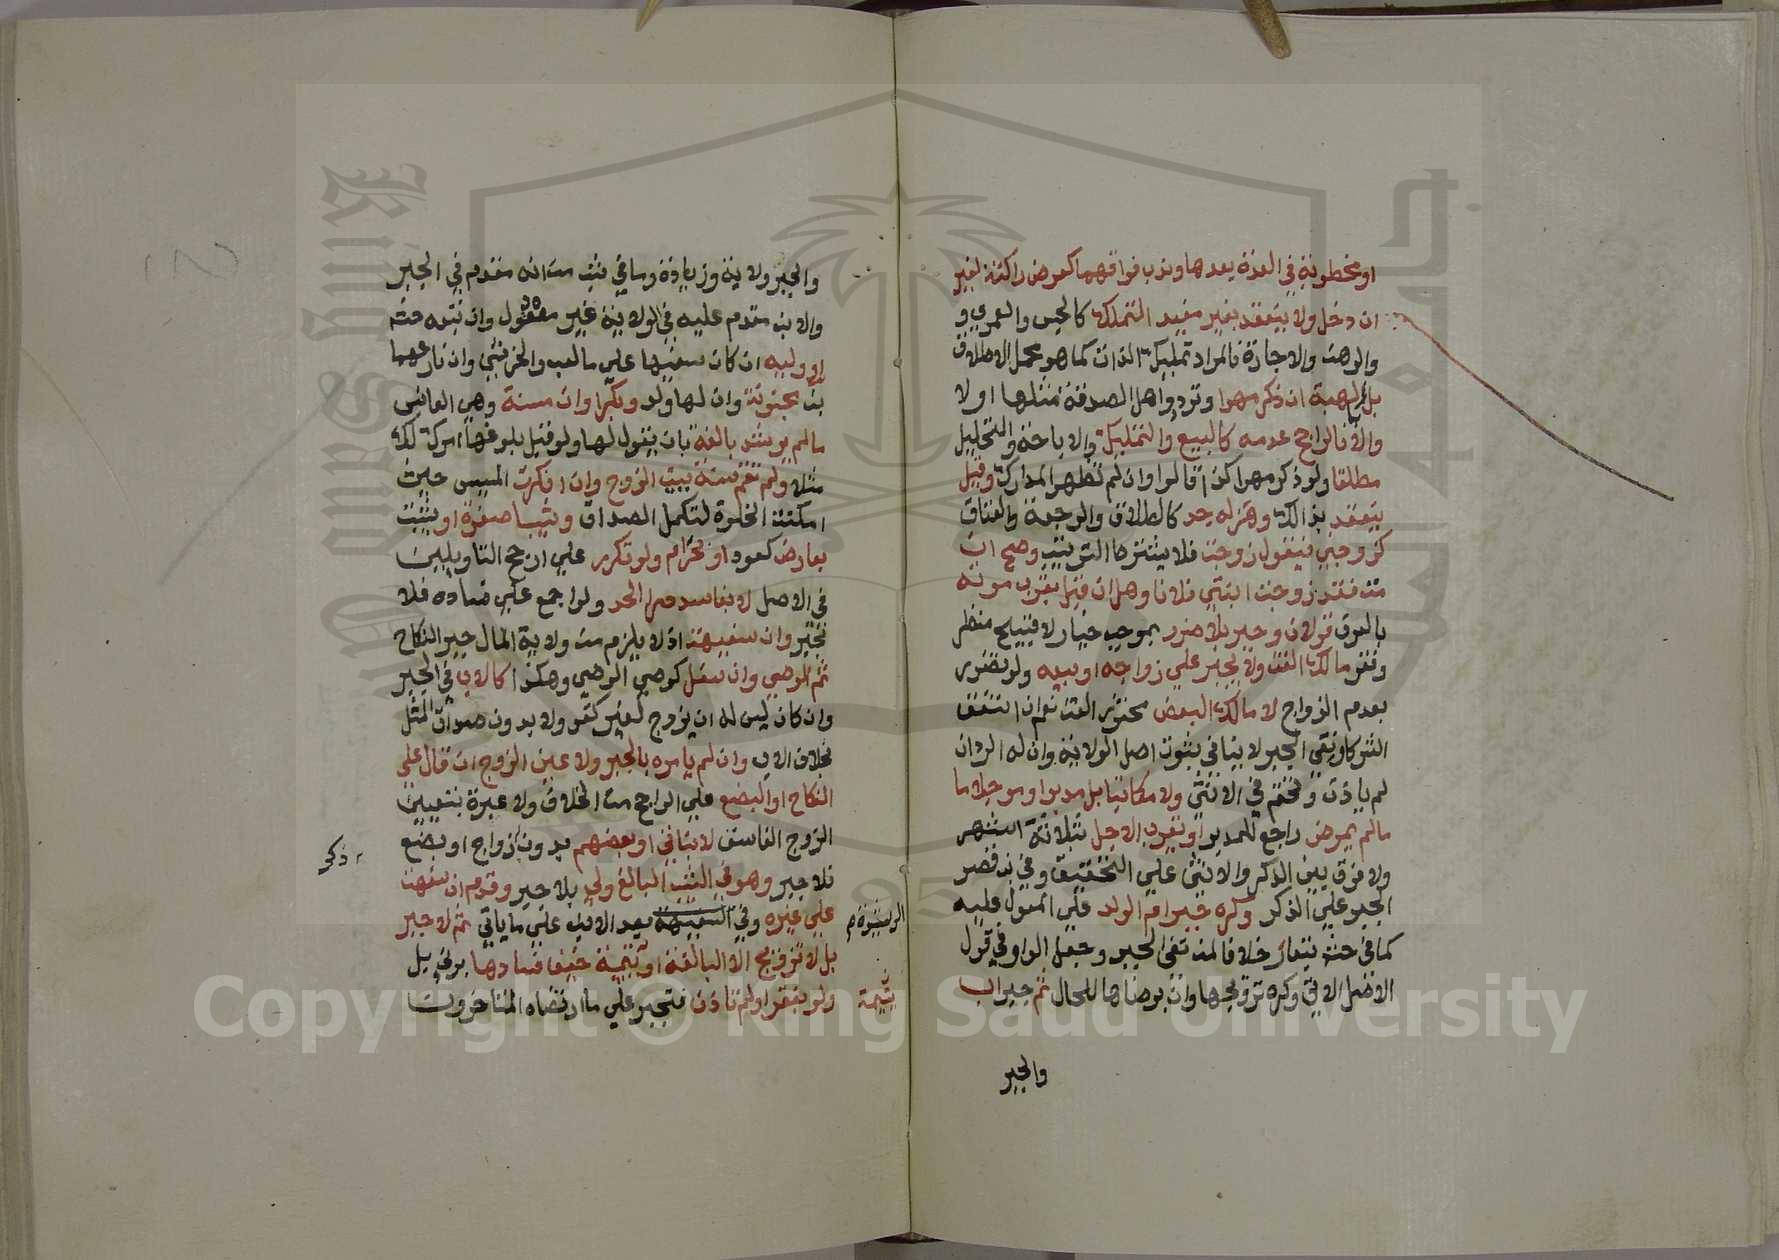 او مخطوبة في العدة بعدها وندب فراقهما كعرض راكنة لغير
ان دخل ولا ينعقد بغير مفيد التملك كالحبس والعمرى و
والرهن والاجارة فالمراد تمليك الذات كما هو محمل الاطلاق
بل كالهبة ان ذكر مهرا وتردد واهل الصدقة مثلها او لا
والا فالراجح عدمه كالبيع والتمليك والاباحة والتحليل
مطلقا ولو ذكر مهرا كذا قالوا وان لم تظهر المدارك وقيل
ينعقد بذالك وهزله جد كالطلاق والرجعة والعتاق
كزوجني فيقول زوجت فلا يشترط الترتيب وصح ان
مت فقد زوجت ابنتي فلانا وهل ان قبل بقرب موته
بالعرف قولان وجبر بلا ضرر بموجب خيار لا قبيح منظر
وفقر مالك القن ولا يجبر على زواجه او بيعه ولو تضرر
بعدم الزواج لا مالك البعض محتوى العتق نعم ان اتفق
الشركا ونفي الجبر لا ينافي ثبوت اصل الولاية وان له الرد ان
لم ياذن وتحتم في الانثى ولا مكاتبا بل مدبرا ومؤجلا ما
مالم يمرض راجع للمدبر او يقرب الاجل بثلاثة اشهر
ولا فرق بين الذكر والانثى على التحقيق وفي بن قصر
الجبر على الذكر وكره جبر ام الولد على المعول عليه
كما في حش تبعا خلافا لمن نفى الجبر وجعل الواو في قول
الاصل الاتي وكره تزويجها وان برضاها للحال ثم جبر اب
والجبر
والجبر ولاية وزيادة وما في بن من انه مقدم في الجبر
والابن مقدم عليه في الولاية غير معقول وان تبعه حش
او وليه ان كان سفيها على ما لعب والخرشي وان نازعهما
بن مجنونة وان لها ولد وبكرا وان مسنة وهي العانس
مالم يرشد بالغة بان يقول لها ولو قبل بلوغها امرك لك
مثلا ولم تقم سنة ببيت الزوج وان انكرت المسيس حيث
امكنت الخلوة لتكمل الصداق وثيبا صغرت او بثيب
بعارض كعود او بحرام ولو تكرر على ارجح التاويلين
في الاصل لا بفاسد درا الحد ولو اجمع على فساده فلا
تجبر وان سفيهة اذ لا يلزم من ولاية المال جبر النكاح
ثم الوصي وان سفل كوصي الوصي وهكذا كالاب في الجبر
وان كان ليس له ان يزوج لغير كفو ولا بدون صداق المثل
بخلاف الاب وان لم يامره بالجبر ولا عين الزوج ان قال على
النكاح او البضع على الراجح من الخلاف ولا عبرة بتعيين
الزوج الفاسق لا بنافي او بعضهم بدون زواج او بضع
ذكر
فلا جبر وهو في الثيب البالغ ولي بلا جبر وقدم ان سفهت
على غيره وفي السفيهة بعد الابن على ما ياتي ثم لا جبر
الرشيدة
بل لا تزويج الا البالغة او يتيمة خيف فسادها بوجه بل
ولو بفقر او لم تاذن فتجبر على ما ارتضاه المتاخرون
يتيمة
Copyright © King Saud University
King Saud University
جامعة الملك سعود
1957